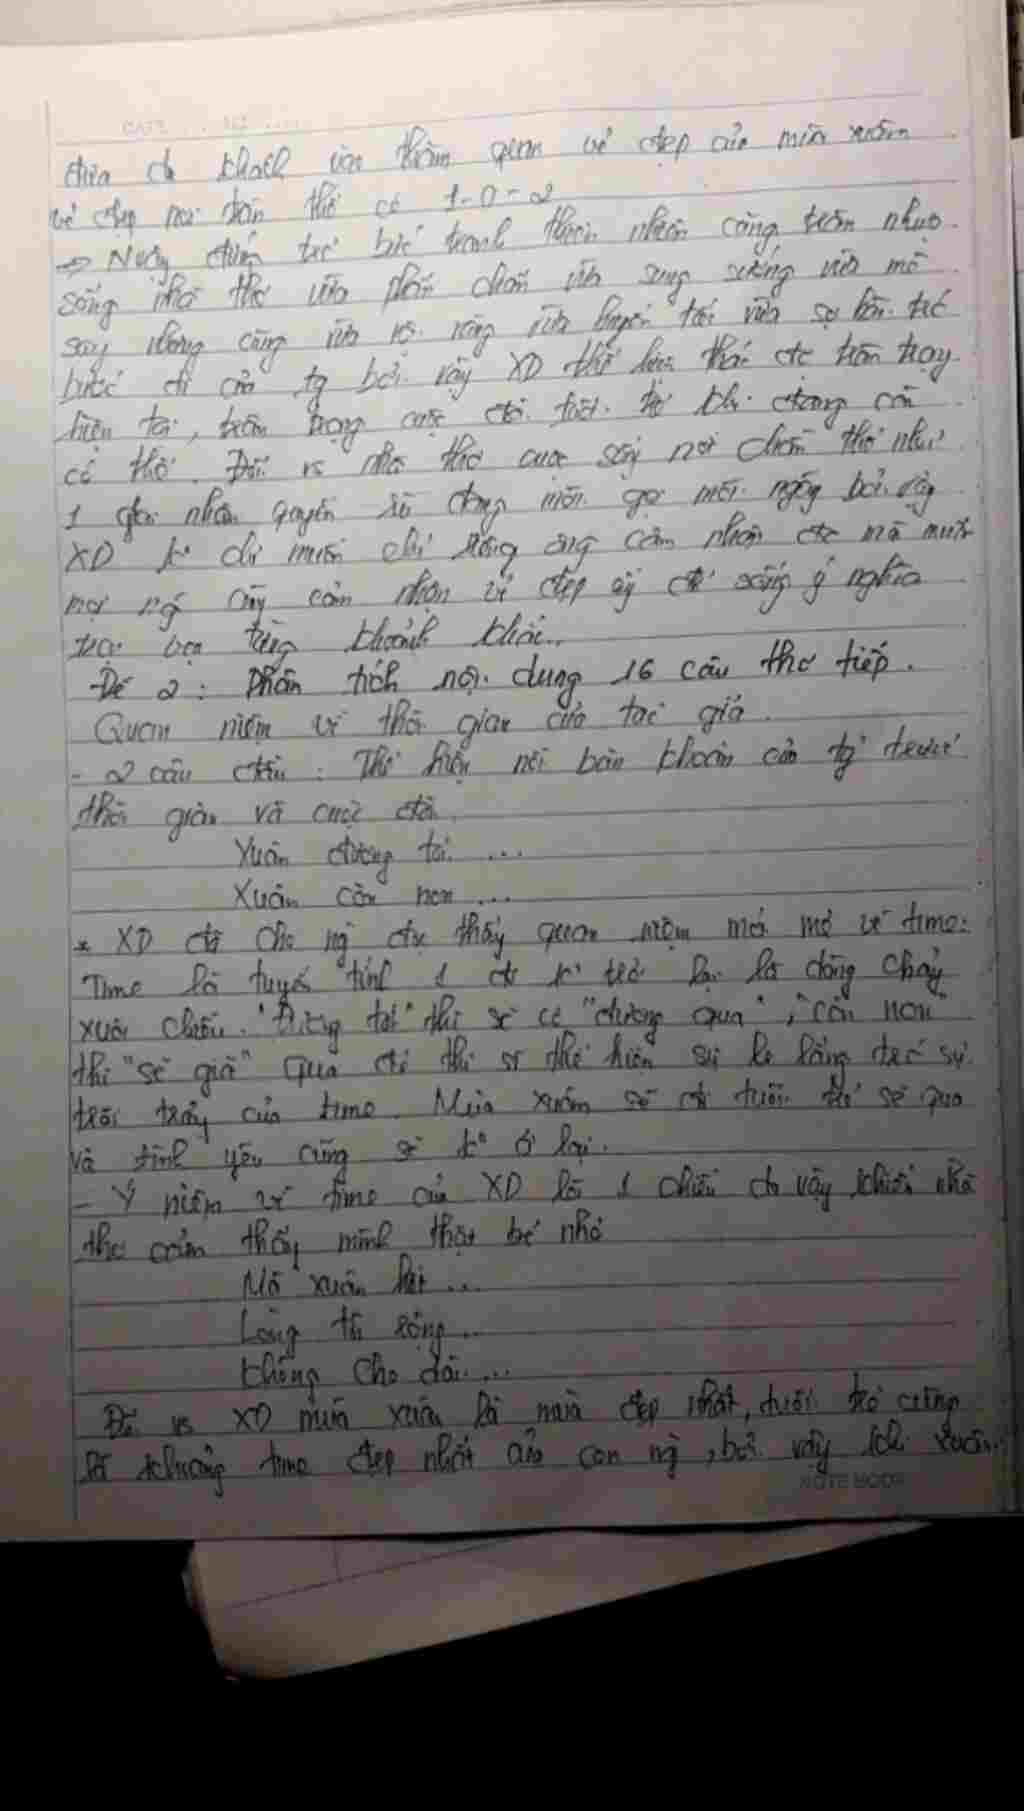 đưa du khách vào thăm quan vẻ đẹp của mùa xuân
vẻ đẹp nơi trần thế có 1-0-2
=> Ngây đắm trc bức tranh thiên nhiên căng tràn nhựa
sống nhà thơ vừa phấn chấn vừa sung sướng vừa mê
say nhưng cũng vừa vội vàng vừa luyến tiếc vừa sợ hãi trc
bước đi của tg bởi vậy XD thể hiện thái độ trân trọng
hiện tại, trân trọng cuộc đời tuổi trẻ khi đang còn
có thể. Đối vs nhà thơ cuộc sống nơi trần thế như
1 giai nhân quyến rũ đang mời gọi mỗi ngày bởi vậy
XD ko chỉ muốn chỉ riêng ông cảm nhận đc mà muốn
mọi ng cùng cảm nhận vẻ đẹp ấy để sống ý nghĩa
trọn vẹn từng khoảnh khắc..
Đề 2 : Phân tích nội dung 16 câu thơ tiếp.
Quan niệm về thời gian của tác giả.
- 2 câu đầu : Thể hiện nỗi băn khoăn của tg trước
thời gian và cuộc đời.
Xuân đương tới ...
Xuân còn non ...
* XD đã cho ng đọc thấy quan niệm mới mẻ về time:
Time là tuyến tính 1 đi ko trở lại là dòng chảy
xuôi chiều. "Đương tới" thì sẽ có "đương qua", "còn non"
thì "sẽ già" Qua đó thi sĩ thể hiện sự lo lắng trc sự
trôi chảy của time. Mùa xuân sẽ đi tuổi trẻ sẽ qua
và tình yêu cũng sẽ ko ở lại.
- Ý niệm về time của XD là 1 chiều do vậy khiến nhà
thơ cảm thấy mình thật bé nhỏ
Mà xuân hết ...
Lòng tôi rộng ...
Không cho dài ...
Đối vs XD mùa xuân là mùa đẹp nhất, tuổi trẻ cũng
là khoảng time đẹp nhất của con ng, bởi vậy khi xuân
NOTE BOOK